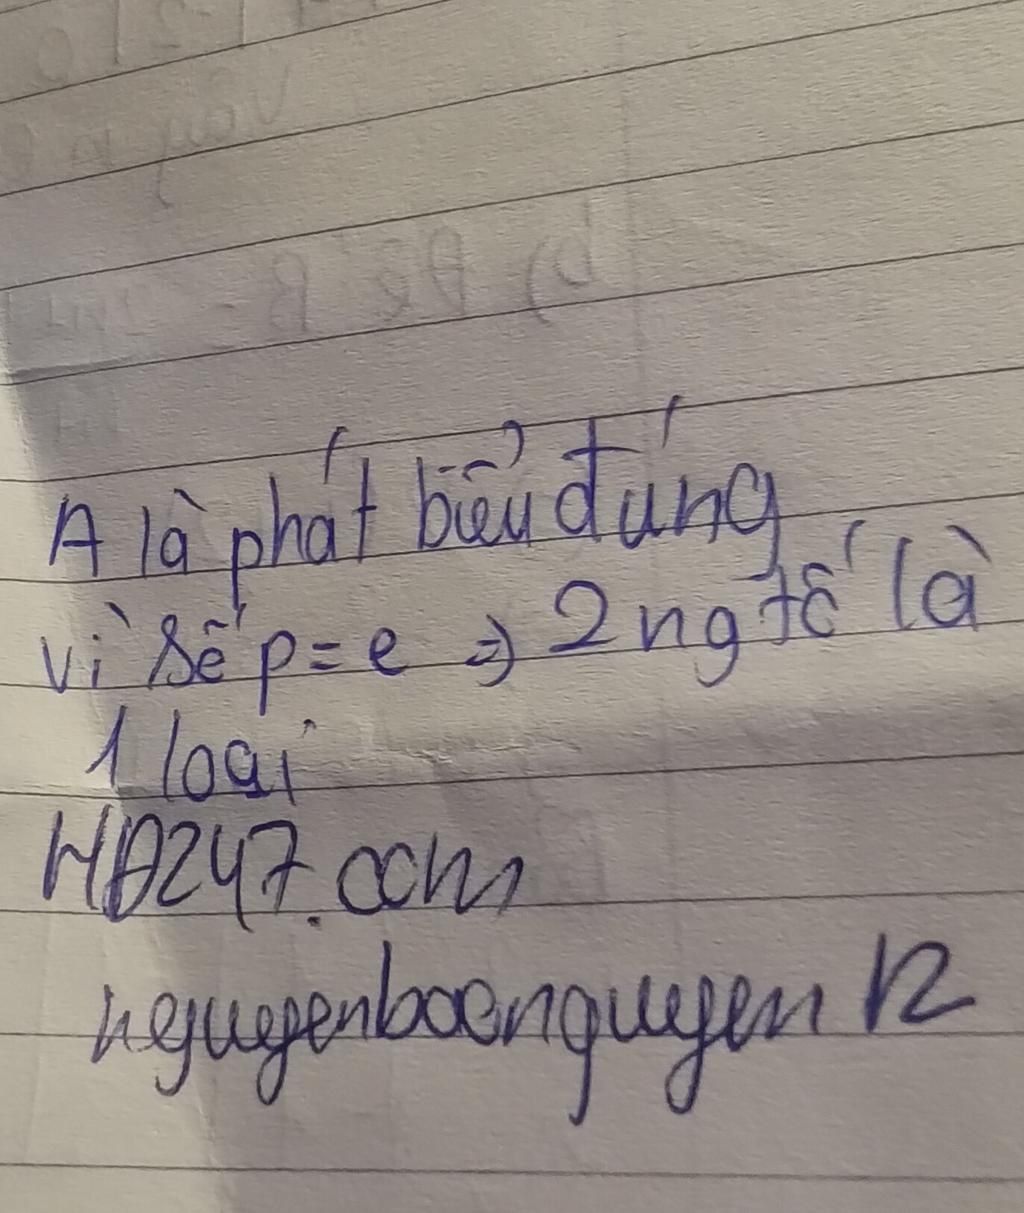 A là phát biểu đúng
vì số p = e => 2 ng tố là
1 loại
HĐ247.com
nguyenbaonguyen12